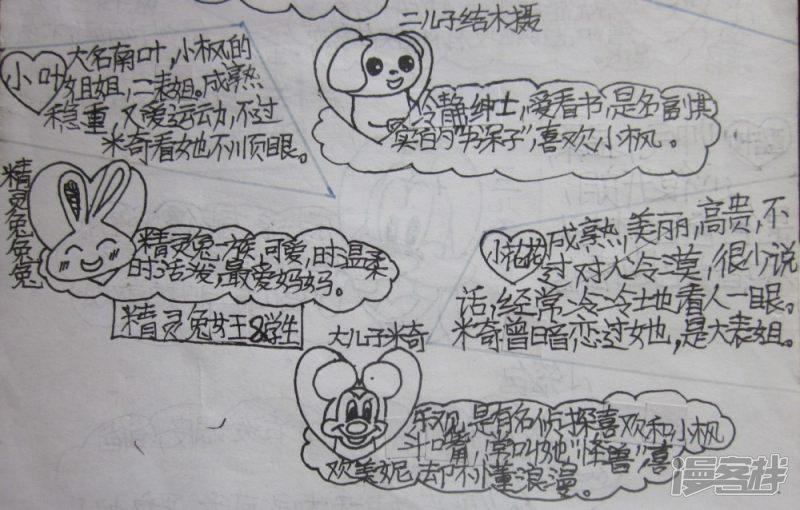 小叶
大名南叶，小枫的
姐姐，二表姐。成熟
稳重，又爱运动，不过
米奇看她不顺眼。
二儿子结木摄
冷静绅士，爱看书，是名副其
实的“书呆子”，喜欢小枫。
精灵兔兔兔
精灵兔一族，可爱，时温柔
时活泼，最爱妈妈。
精灵兔女王&学生
小花花
成熟，美丽，高贵，不
过对人冷漠，很少说
话，经常冷冷地看人一眼。
米奇曾暗恋过她，是大表姐。
大儿子米奇
乐观，是有名侦探喜欢和小枫
斗嘴，常叫她“怪兽”，喜
欢美妮，却不懂浪漫。
漫客栈